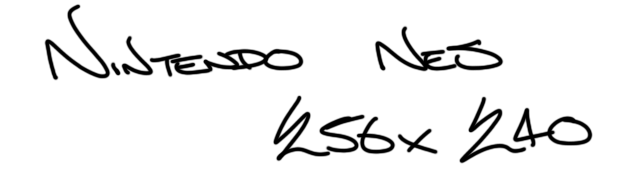 Nintendo NES
256x240